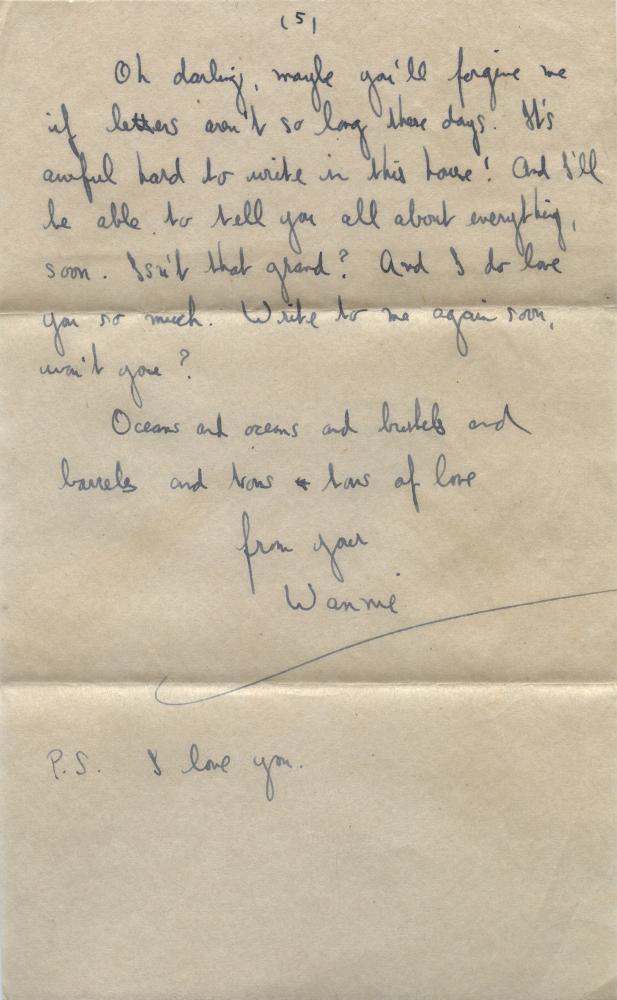 (5)
Oh darling, maybe you'll forgive me
if letters aren't so long these days. It's
awful hard to write in this house! And I'll
be able to tell you all about everything,
soon. Isn't that grand? And I do love
you so much. Write to me again soon,
won't you?
Oceans and oceans and bushels and
barrels and tons & tons of love
from your
Winnie
P.S. I love you.